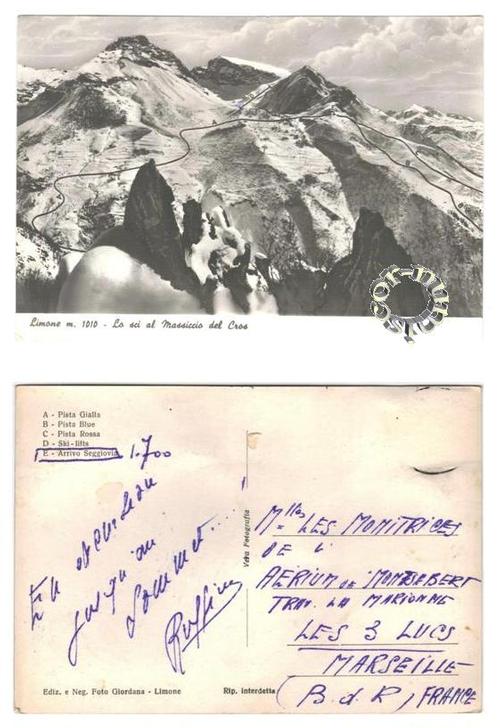 Limone m. 1010 - Lo sci al Massiccio del Cros
A - Pista Gialla
B - Pista Blue
C - Pista Rossa
D - Ski-lifts
E - Arrivo Seggiovia 1.700
En
jusqu'au
Sommet....!
Ruffino
Ediz. e Neg. Foto Giordana - Limone
Vera Fotografia
Rip. interdetta
Mlles LES MONITRICES
DE L'
AERIUM DE MONTSEBERT
TRAV. LA MARIONNE
LES 3 LUCS
MARSEILLE
(B. d. R, FRANCE